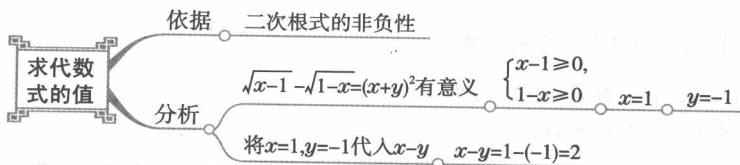 求代数
式的值
依据
二次根式的非负性
分析
√x-1 -√1-x=(x+y)²有意义
{x-1≥0,
1-x≥0
x=1
y=-1
将x=1,y=-1代入x-y
x-y=1-(-1)=2